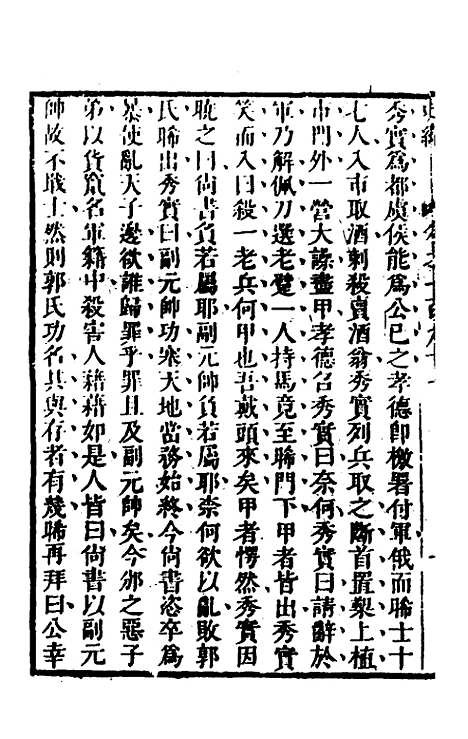 秀實爲都虞侯能爲公已之孝德卽檄署付軍俄而晞士十
七人入市取酒刺殺賣酒翁秀實列兵取之斷首置槊上植
市門外一營大譟盡甲孝德召秀實曰奈何秀實曰請辭於
軍乃解佩刀選老躄一人持馬竟至晞門下甲者皆出秀實
笑而入曰殺一老兵何甲也吾戴頭來矣甲者愕然秀實因
曉之曰尚書負若屬耶副元帥負若屬耶柰何欲以亂敗郭
氏晞出秀實曰副元帥功塞天地當務始終今尚書恣卒爲
暴使亂天子邊欲誰歸罪乎罪且及副元帥矣今邠之惡子
弟以貨竄名軍籍中殺害人藉藉如是人皆曰尚書以副元
帥故不戢士然則郭氏功名其與存者有幾晞再拜曰公幸